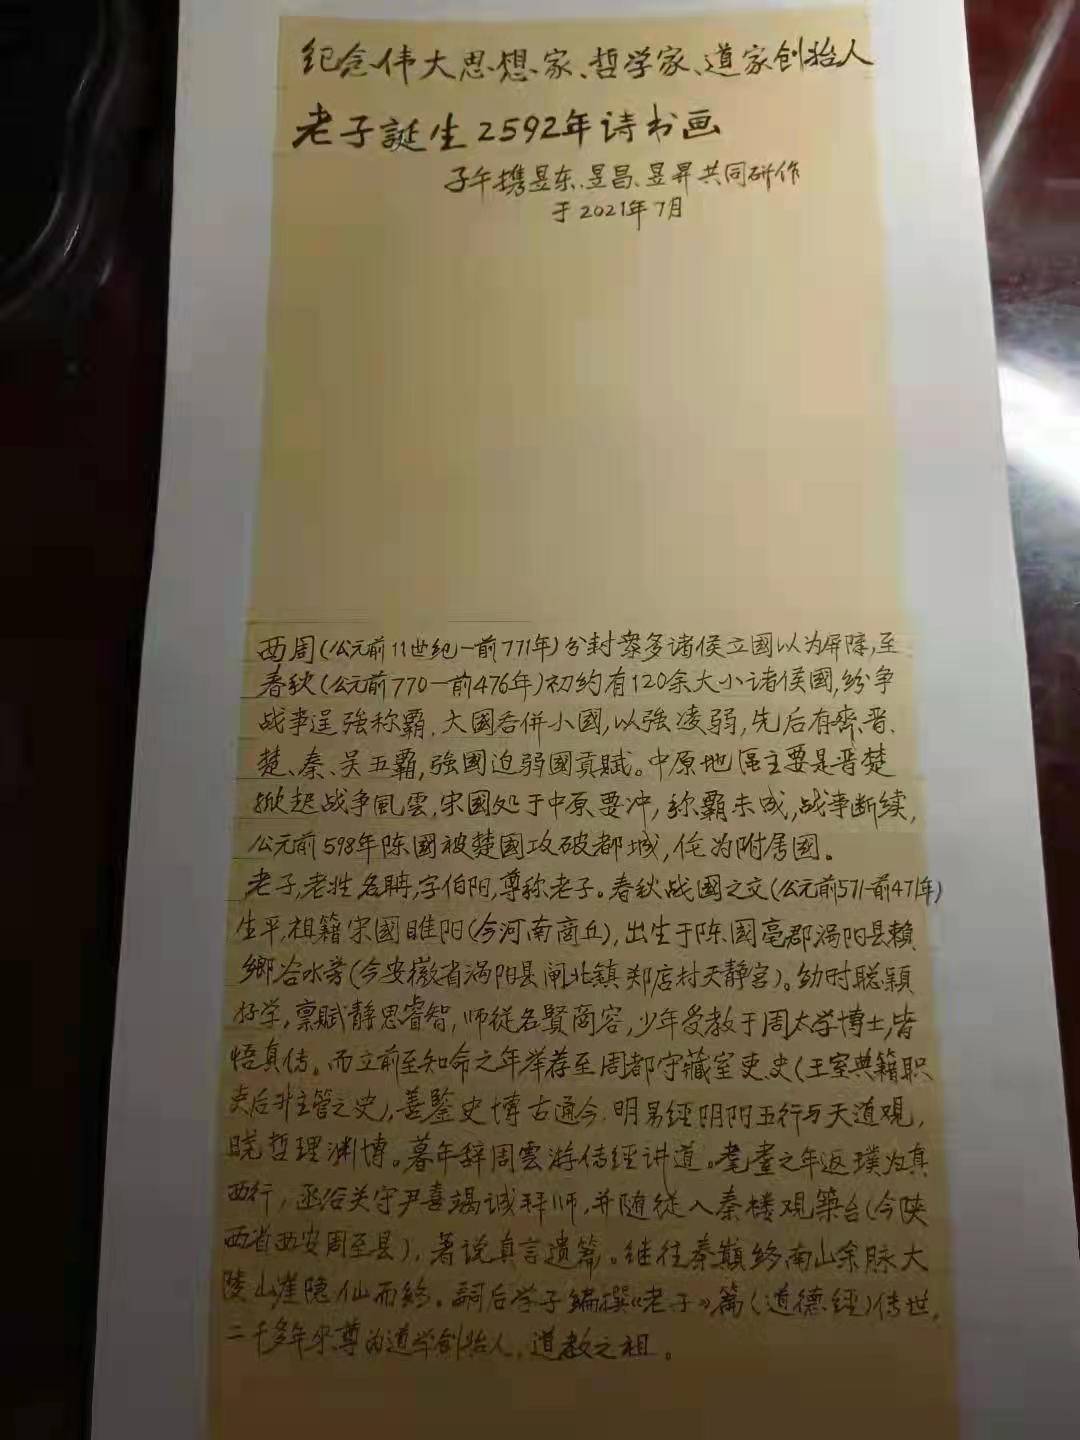 纪念伟大思想家、哲学家、道家创始人
老子誕生2592年诗书画
子午携昱东、昱昌、昱昇共同研作
于2021年7月
西周(公元前11世纪一前771年)分封众多诸侯立國以为屏障,至
春秋(公元前770一前476年)初约有120余大小诸侯國,纷争
战事逞強称霸,大國吞併小國,以強凌弱,先后有齊、晋、
楚、秦、吴五霸,強國迫弱國貢賦。中原地區主要是晋楚
掀起战争風雲,宋國处于中原要冲,称霸未成,战事断续,
公元前598年陈國被楚國攻破都城,伦为附属國。
老子,老姓名聃,字伯阳,尊称老子。春秋战國之交(公元前571-前471年)
生平,祖籍宋國睢阳(今河南商丘),出生于陈國亳郡涡阳县賴
鄉谷水旁(今安徽省涡阳县闸北鎮郑店村天静宫)。幼时聪穎
好学,禀賦静思睿智,师從名賢商容,少年受教于周太学博士,皆
悟真传。而立前至知命之年举荐至周都守藏室吏、史(王室典籍职
吏后升主管之史),善鑒史博古通今,明易經阴阳五行与天道观,
晓哲理渊博。暮年辞周雲游传經讲道。耄耋之年返璞为真
西行,函谷关守尹喜竭诚拜师,并随從入秦楼观築台(今陕
西省西安周至县),著说真言遗篇。继往秦巅终南山余脉大
陵山崖隐仙而终。嗣后学子编撰《老子》篇(道德經)传世,
二千多年来尊为道学创始人,道教之祖。